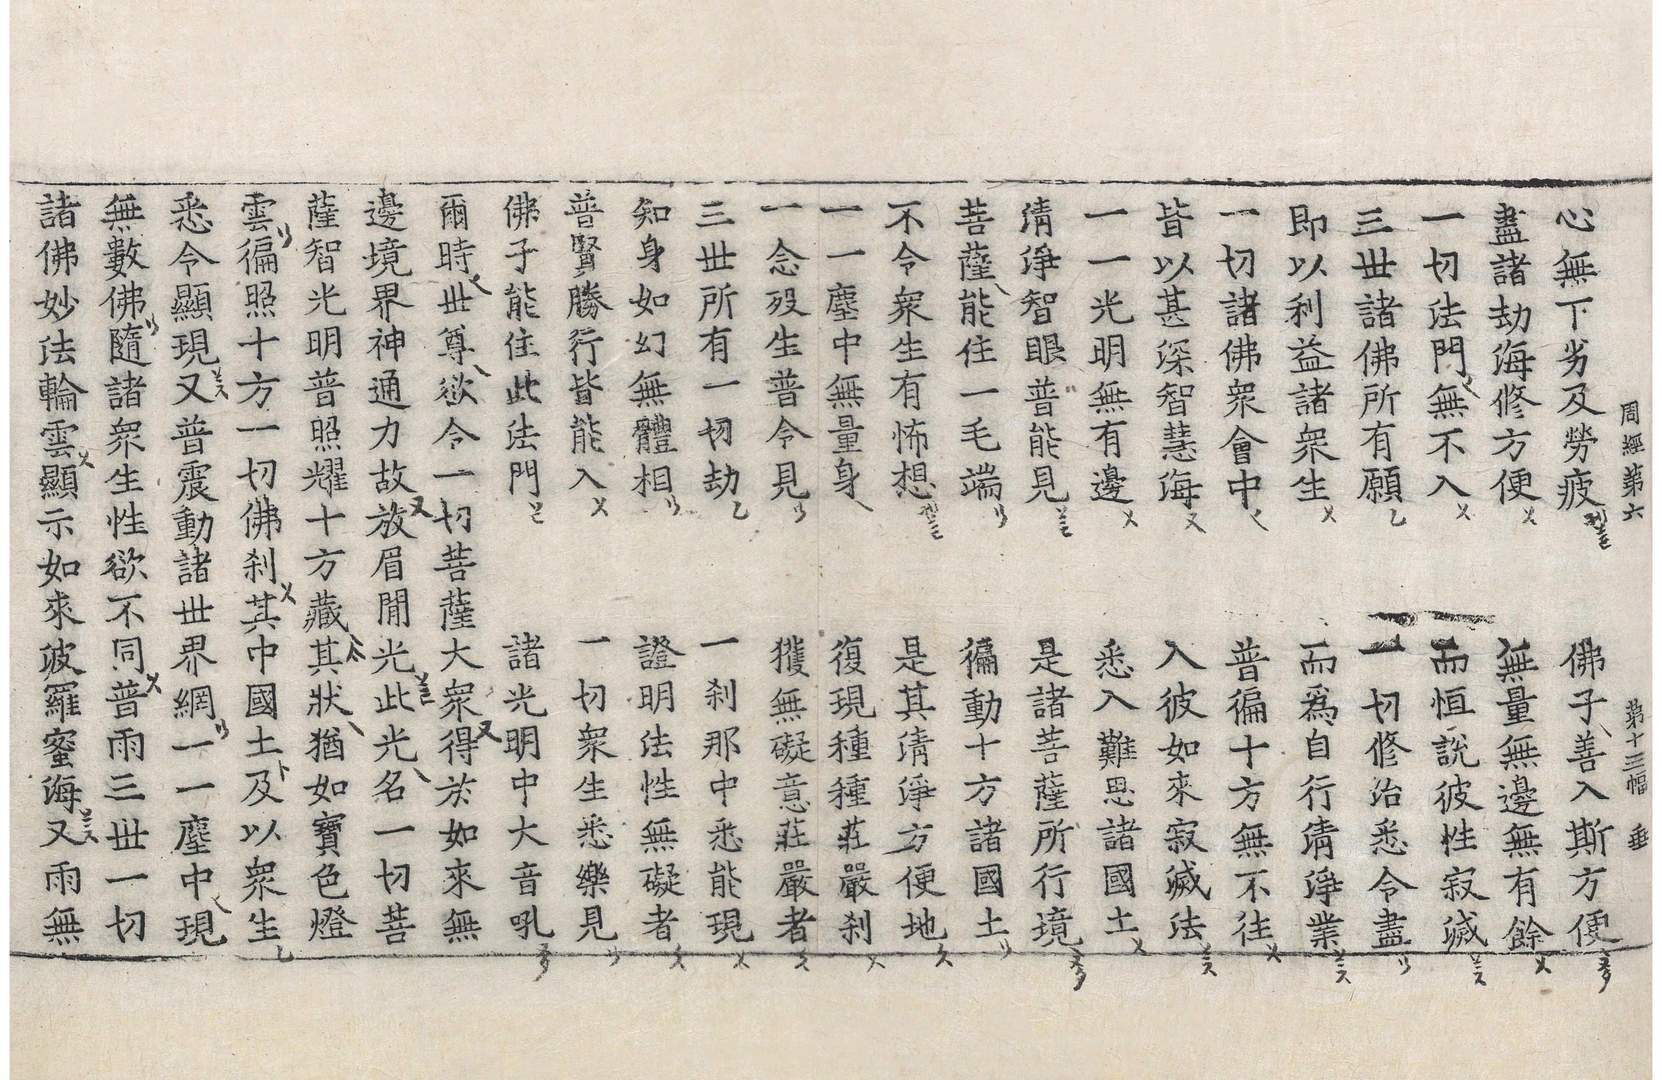 周經第六　第十三幅　垂
心無下劣及勞疲　佛子善入斯方便
盡諸劫海修方便　無量無邊無有餘
一切法門無不入　而恒說彼性寂滅
三世諸佛所有願　一切修治悉令盡
即以利益諸衆生　而爲自行清淨業
一切諸佛衆會中　普徧十方無不往
皆以甚深智慧海　入彼如來寂滅法
一一光明無有邊　悉入難思諸國土
清淨智眼普能見　是諸菩薩所行境
菩薩能住一毛端　徧動十方諸國土
不令衆生有怖想　是其清淨方便地
一一塵中無量身　復現種種莊嚴刹
一念歿生普令見　獲無礙意莊嚴者
三世所有一切劫　一刹那中悉能現
知身如幻無體相　證明法性無礙者
普賢勝行皆能入　一切衆生悉樂見
佛子能住此法門　諸光明中大音吼
爾時世尊欲令一切菩薩大衆得於如來無
邊境界神通力故放眉間光此光名一切菩
薩智光明普照耀十方藏其狀猶如寶色燈
雲徧照十方一切佛刹其中國土及以衆生
悉令顯現又普震動諸世界網一一塵中現
無數佛隨諸衆生性欲不同普雨三世一切
諸佛妙法輪雲顯示如來波羅蜜海又雨無